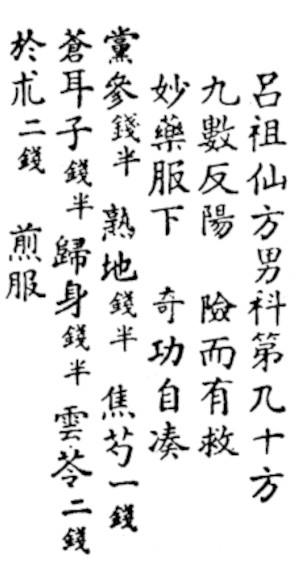 呂祖仙方男科第九十方
九數反陽 險而有救
妙藥服下 奇功自湊
黨參錢半 熟地錢半 焦芍一錢
蒼耳子錢半 歸身錢半 雲苓二錢
於朮二錢 煎服